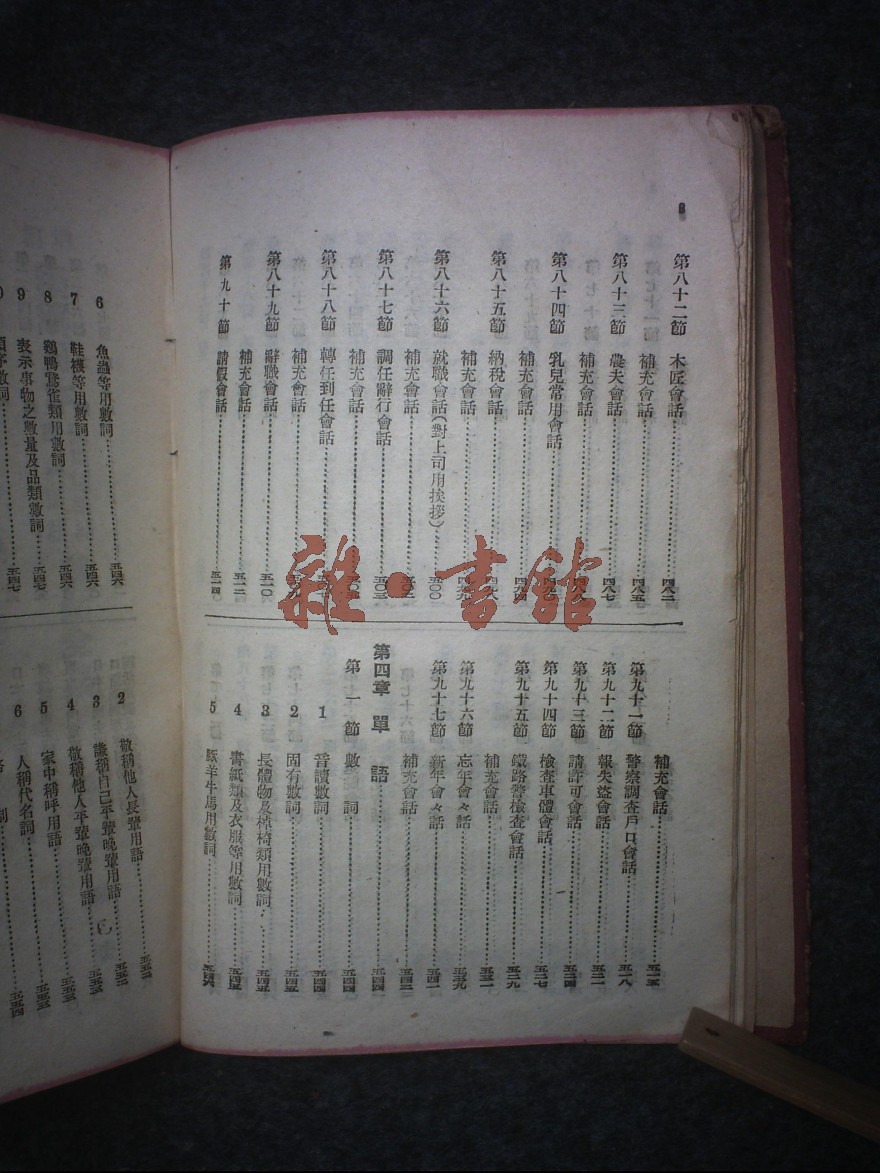 8
第八十二節 木匠會話 四八二
補充會話 四八五
第八十三節 農夫會話 四八七
補充會話
第八十四節 乳兒常用會話
補充會話 四九四
第八十五節 納稅會話 四九八
補充會話 四九九
第八十六節 就職會話(對上司用挨拶) 五〇〇
補充會話
第八十七節 調任辭行會話 五〇三
補充會話
第八十八節 轉任到任會話
補充會話
第八十九節 辭職會話 五一〇
補充會話 五一二
第九十節 請假會話 五一四
補充會話 五一五
第九十一節 警察調查戶口會話 五一八
第九十二節 報失盜會話 五二一
第九十三節 請許可會話 五二四
第九十四節 檢查車體會話 五二七
第九十五節 鐵路警檢查會話 五二九
補充會話 五三一
第九十六節 忘年會々話 五三九
第九十七節 新年會々話 五四一
補充會話 五四三
第四章 單語 五四四
第一節 數詞 五四四
1 音讀數詞 五四四
2 固有數詞 五四五
3 長體物及棹椅類用數詞 五四五
4 書紙類及衣服等用數詞 五四五
5 豚羊牛馬用數詞 五四六
6 魚蟲等用數詞 五四六
7 鞋襪等用數詞 五四六
8 鷄鴨鵞雀類用數詞 五四七
9 表示事物之數量及品類數詞 五四七
2 敬稱他人長輩用語 五五二
3 謙稱自己平輩晚輩用語 五五二
4 敬稱他人平輩晚輩用語 五五三
5 家中稱呼用語 五五三
6 人稱代名詞 五五四
雜·書館